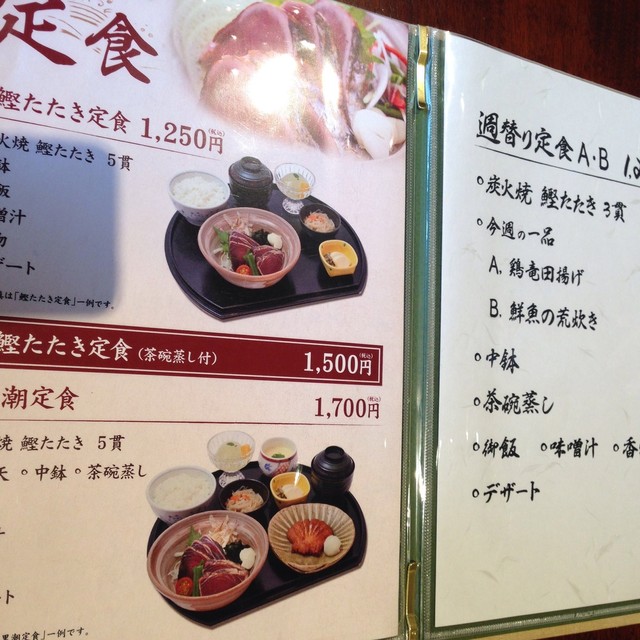 定食
鰹たたき定食 1,250円(税込)
火焼 鰹たたき 5貫
鉢
飯
噌汁
物
ザート
は「鰹たたき定食」一例です。
鰹たたき定食(茶碗蒸し付) 1,500円(税込)
潮定食 1,700円(税込)
焼 鰹たたき 5貫
天 ○中鉢 ○茶碗蒸し
ト
黒潮定食」一例です。
週替り定食A・B
○炭火焼 鰹たたき 3貫
○今週の一品
A. 鶏竜田揚げ
B. 鮮魚の荒炊き
○中鉢
○茶碗蒸し
○御飯 ○味噌汁 ○香
○デザート